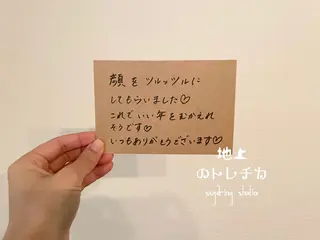 顔をツルッツルに
してもらいました♡
これでいい年をむかえれ
そうです♡
いつもありがとうございます♡
地上
のトレチカ